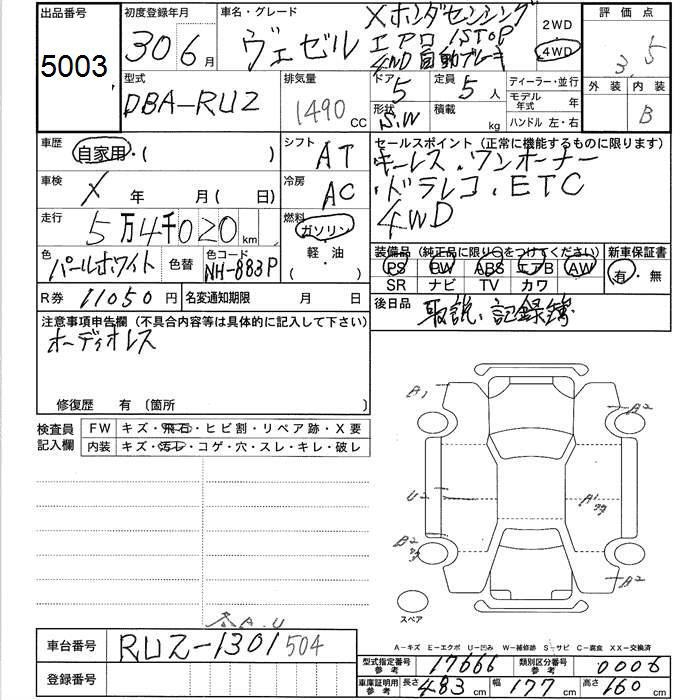 出品番号 初度登録年月 車名・グレード Xホンダセンシング 評価点
5003 30 6月 ヴェゼル エアロ ISTOP 2WD 3.5
4WD 自動ブレーキ 4WD
外装 内装
B
型式 排気量 ドア 定員 ディーラー・並行
DBA-RU2 1490CC 5 5人 モデル年式 年
形状 積載 ハンドル 左・右
S.W kg
車歴 自家用・( ) シフト AT
セールスポイント (正常に機能するものに限ります)
キーレス.ワンオーナー
・ドラレコ.ETC
4WD
車検 X年 月( 日) 冷房 AC
走行 5万4千020km 燃料 ガソリン・軽・油( )
色 パールホワイト 色替 色コード NH-883P
装備品 (純正品に限り○をつけてください) 新車保証書
PS PW ABS エアB AW 有・無
SR ナビ TV カワ
R券 11050円 名変通知期限 月 日
後日品 取説、記録簿
注意事項申告欄 (不具合内容等は具体的に記入して下さい)
オーディオレス
修復歴 有 〔箇所 〕
検査員記入欄 FW キズ・飛石・ヒビ割・リペア跡・X要
内装 キズ・汚レ・コゲ・穴・スレ・キレ・破レ
A1 A2
U2 A1
B2 A2
スペア
下A.U
A－キズ E－エクボ U－凹み W－補修跡 S－サビ C－腐食 XX－交換済
車台番号 RU2-1301504
登録番号
型式指定番号参考 17666 類別区分番号参考 0006
車庫証明用参考 長さ 483cm 幅 177cm 高さ 160cm